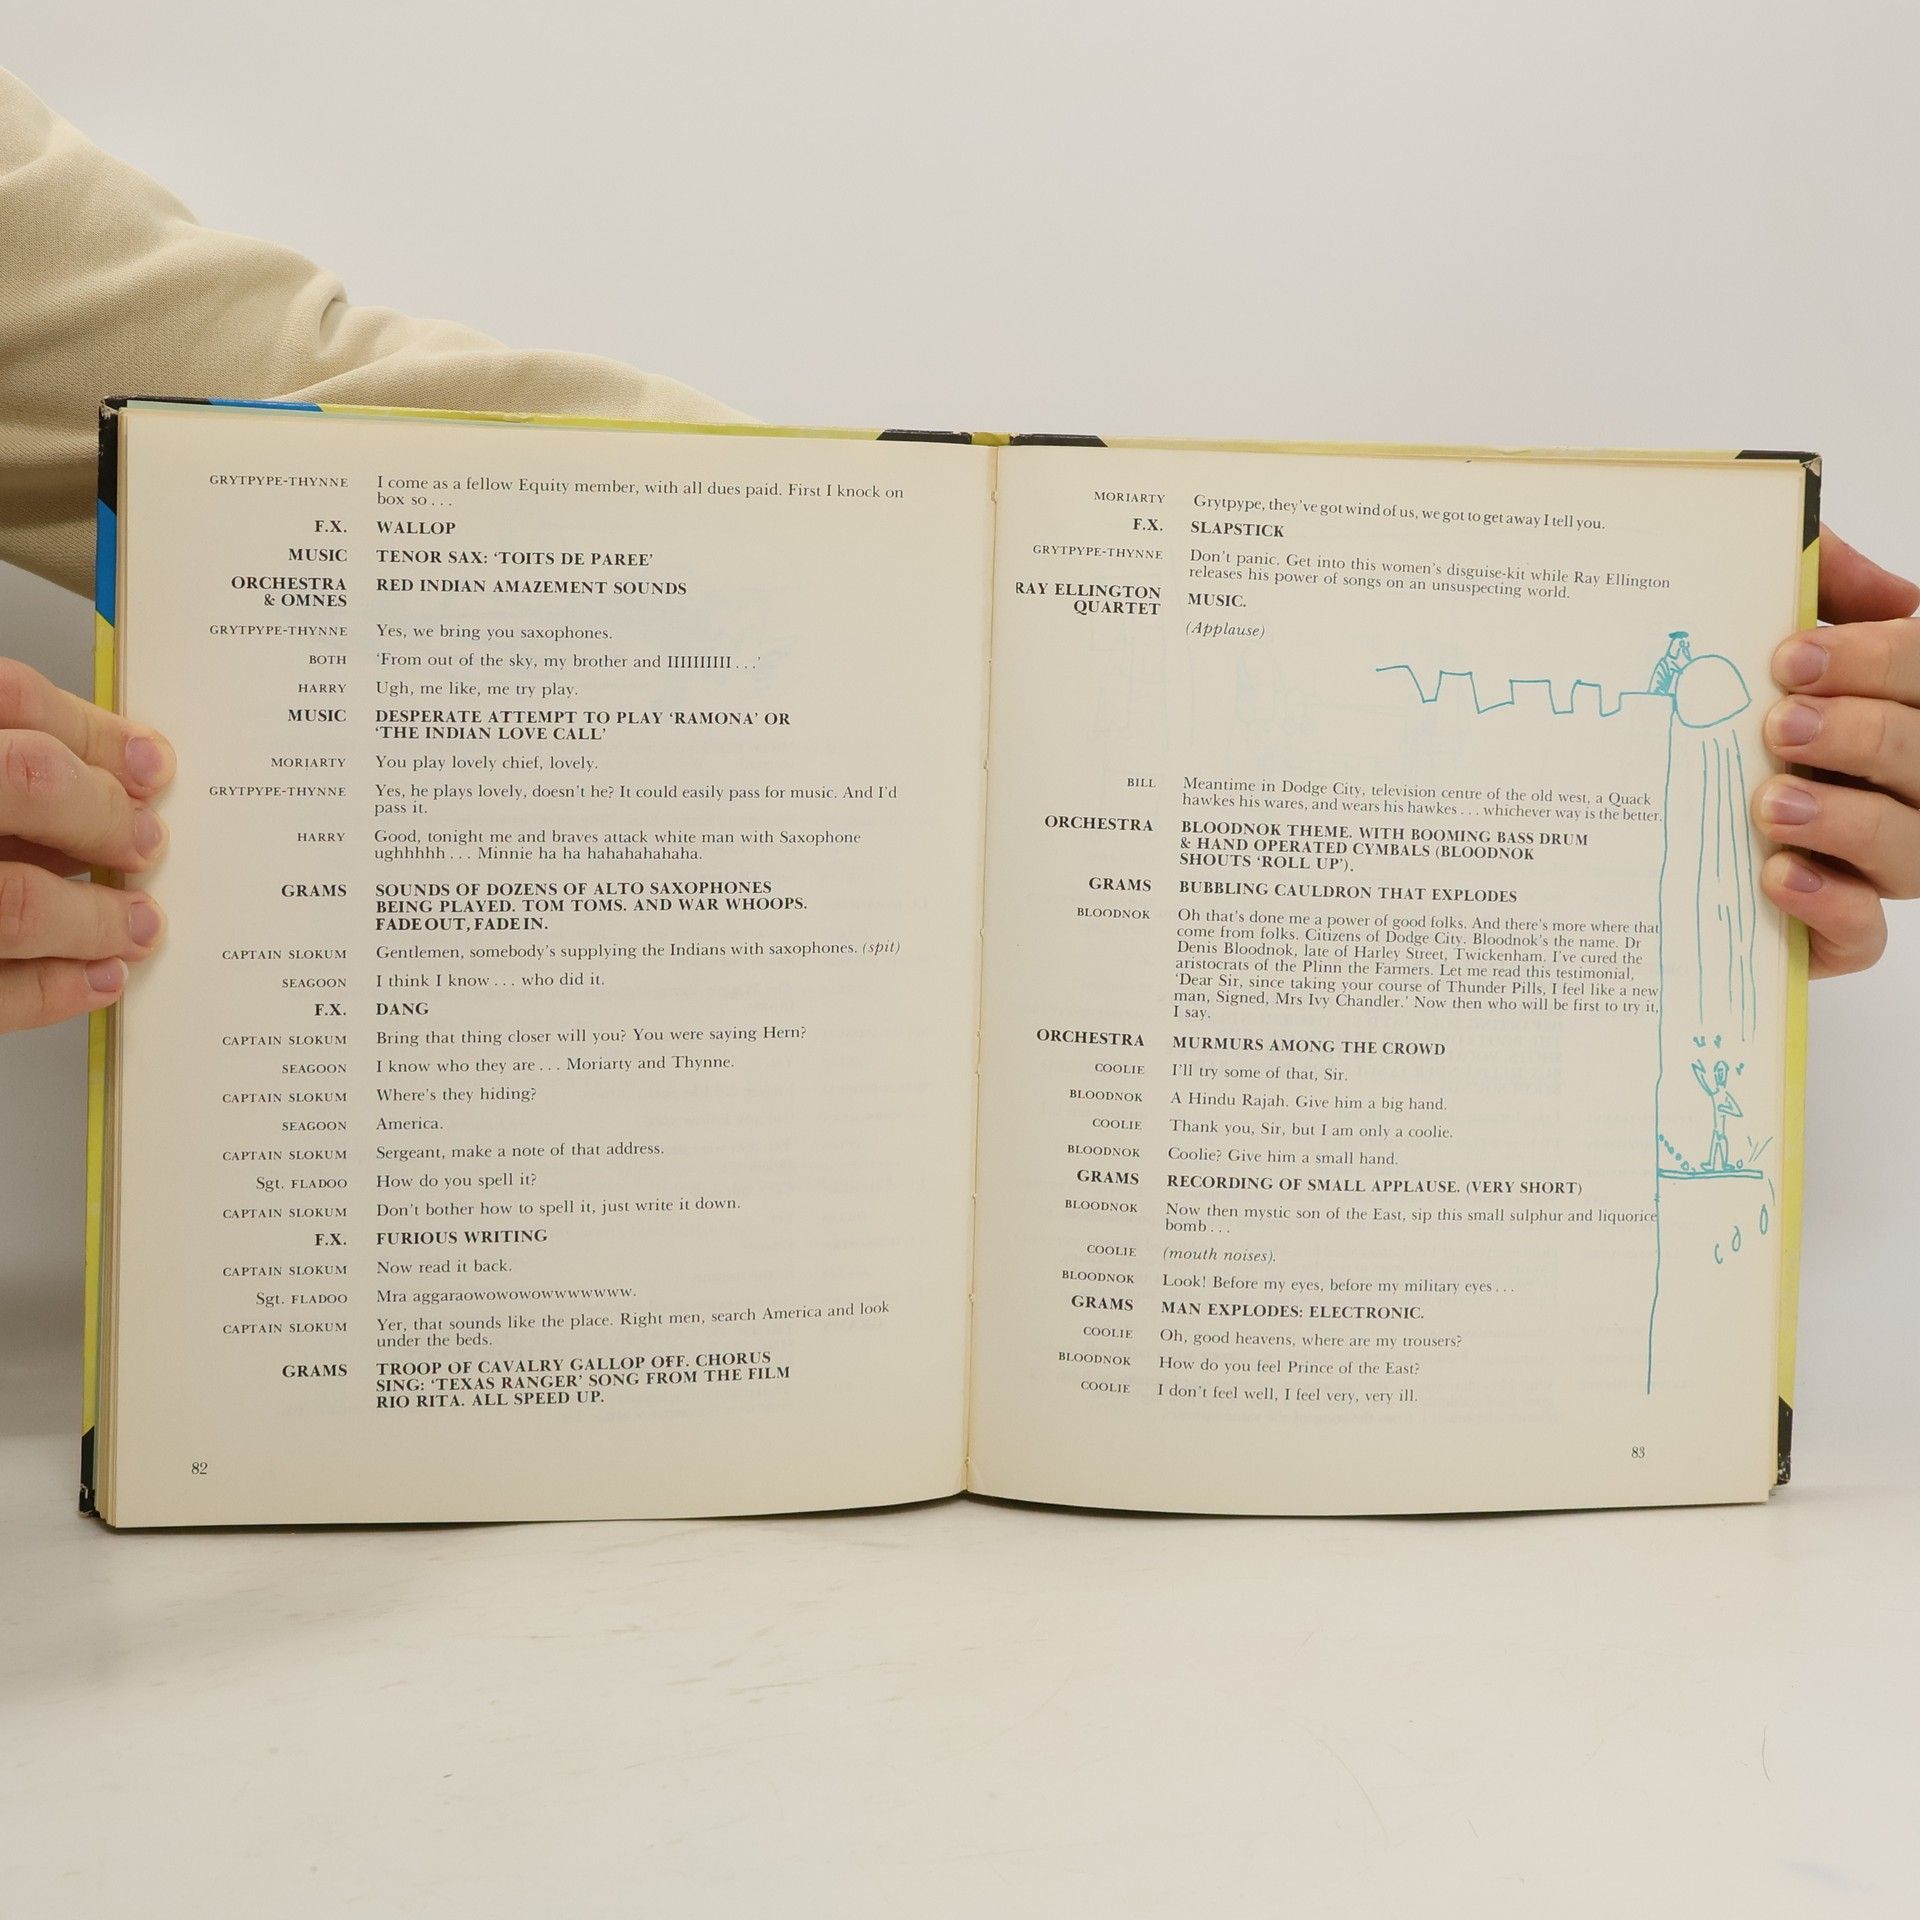 GRYTPYPE-THYNNE I come as a fellow Equity member, with all dues paid. First I knock on
box so . . .
F.X. WALLOP
MUSIC TENOR SAX: ‘TOITS DE PAREE’
ORCHESTRA RED INDIAN AMAZEMENT SOUNDS
& OMNES
GRYTPYPE-THYNNE Yes, we bring you saxophones.
BOTH ‘From out of the sky, my brother and IIIIIIIIII . . .’
HARRY Ugh, me like, me try play.
MUSIC DESPERATE ATTEMPT TO PLAY ‘RAMONA’ OR
‘THE INDIAN LOVE CALL’
MORIARTY You play lovely chief, lovely.
GRYTPYPE-THYNNE Yes, he plays lovely, doesn't he? It could easily pass for music. And I'd
pass it.
HARRY Good, tonight me and braves attack white man with Saxophone
ughhhhh . . . Minnie ha ha hahahahahaha.
GRAMS SOUNDS OF DOZENS OF ALTO SAXOPHONES
BEING PLAYED. TOM TOMS. AND WAR WHOOPS.
FADE OUT, FADE IN.
CAPTAIN SLOKUM Gentlemen, somebody's supplying the Indians with saxophones. (spit)
SEAGOON I think I know . . . who did it.
F.X. DANG
CAPTAIN SLOKUM Bring that thing closer will you? You were saying Hern?
SEAGOON I know who they are . . . Moriarty and Thynne.
CAPTAIN SLOKUM Where's they hiding?
SEAGOON America.
CAPTAIN SLOKUM Sergeant, make a note of that address.
Sgt. FLADOO How do you spell it?
CAPTAIN SLOKUM Don't bother how to spell it, just write it down.
F.X. FURIOUS WRITING
CAPTAIN SLOKUM Now read it back.
Sgt. FLADOO Mra aggaraowowowowwwwwww.
CAPTAIN SLOKUM Yer, that sounds like the place. Right men, search America and look
under the beds.
GRAMS TROOP OF CAVALRY GALLOP OFF. CHORUS
SING: ‘TEXAS RANGER’ SONG FROM THE FILM
RIO RITA. ALL SPEED UP.
82
MORIARTY Grytpype, they've got wind of us, we got to get away I tell you.
F.X. SLAPSTICK
GRYTPYPE-THYNNE Don't panic. Get into this women's disguise-kit while Ray Ellington
releases his power of songs on an unsuspecting world.
RAY ELLINGTON MUSIC.
QUARTET
(Applause)
BILL Meantime in Dodge City, television centre of the old west, a Quack
hawkes his wares, and wears his hawkes . . . whichever way is the better.
ORCHESTRA BLOODNOK THEME. WITH BOOMING BASS DRUM
& HAND OPERATED CYMBALS (BLOODNOK
SHOUTS ‘ROLL UP’).
GRAMS BUBBLING CAULDRON THAT EXPLODES
BLOODNOK Oh that's done me a power of good folks. And there's more where that
come from folks. Citizens of Dodge City. Bloodnok's the name. Dr
Denis Bloodnok, late of Harley Street, Twickenham. I've cured the
aristocrats of the Plinn the Farmers. Let me read this testimonial,
‘Dear Sir, since taking your course of Thunder Pills, I feel like a new
man, Signed, Mrs Ivy Chandler.’ Now then who will be first to try it,
I say.
ORCHESTRA MURMURS AMONG THE CROWD
COOLIE I'll try some of that, Sir.
BLOODNOK A Hindu Rajah. Give him a big hand.
COOLIE Thank you, Sir, but I am only a coolie.
BLOODNOK Coolie? Give him a small hand.
GRAMS RECORDING OF SMALL APPLAUSE. (VERY SHORT)
BLOODNOK Now then mystic son of the East, sip this small sulphur and liquorice
bomb . . .
COOLIE (mouth noises).
BLOODNOK Look! Before my eyes, before my military eyes . . .
GRAMS MAN EXPLODES: ELECTRONIC.
COOLIE Oh, good heavens, where are my trousers?
BLOODNOK How do you feel Prince of the East?
COOLIE I don't feel well, I feel very, very ill.
83